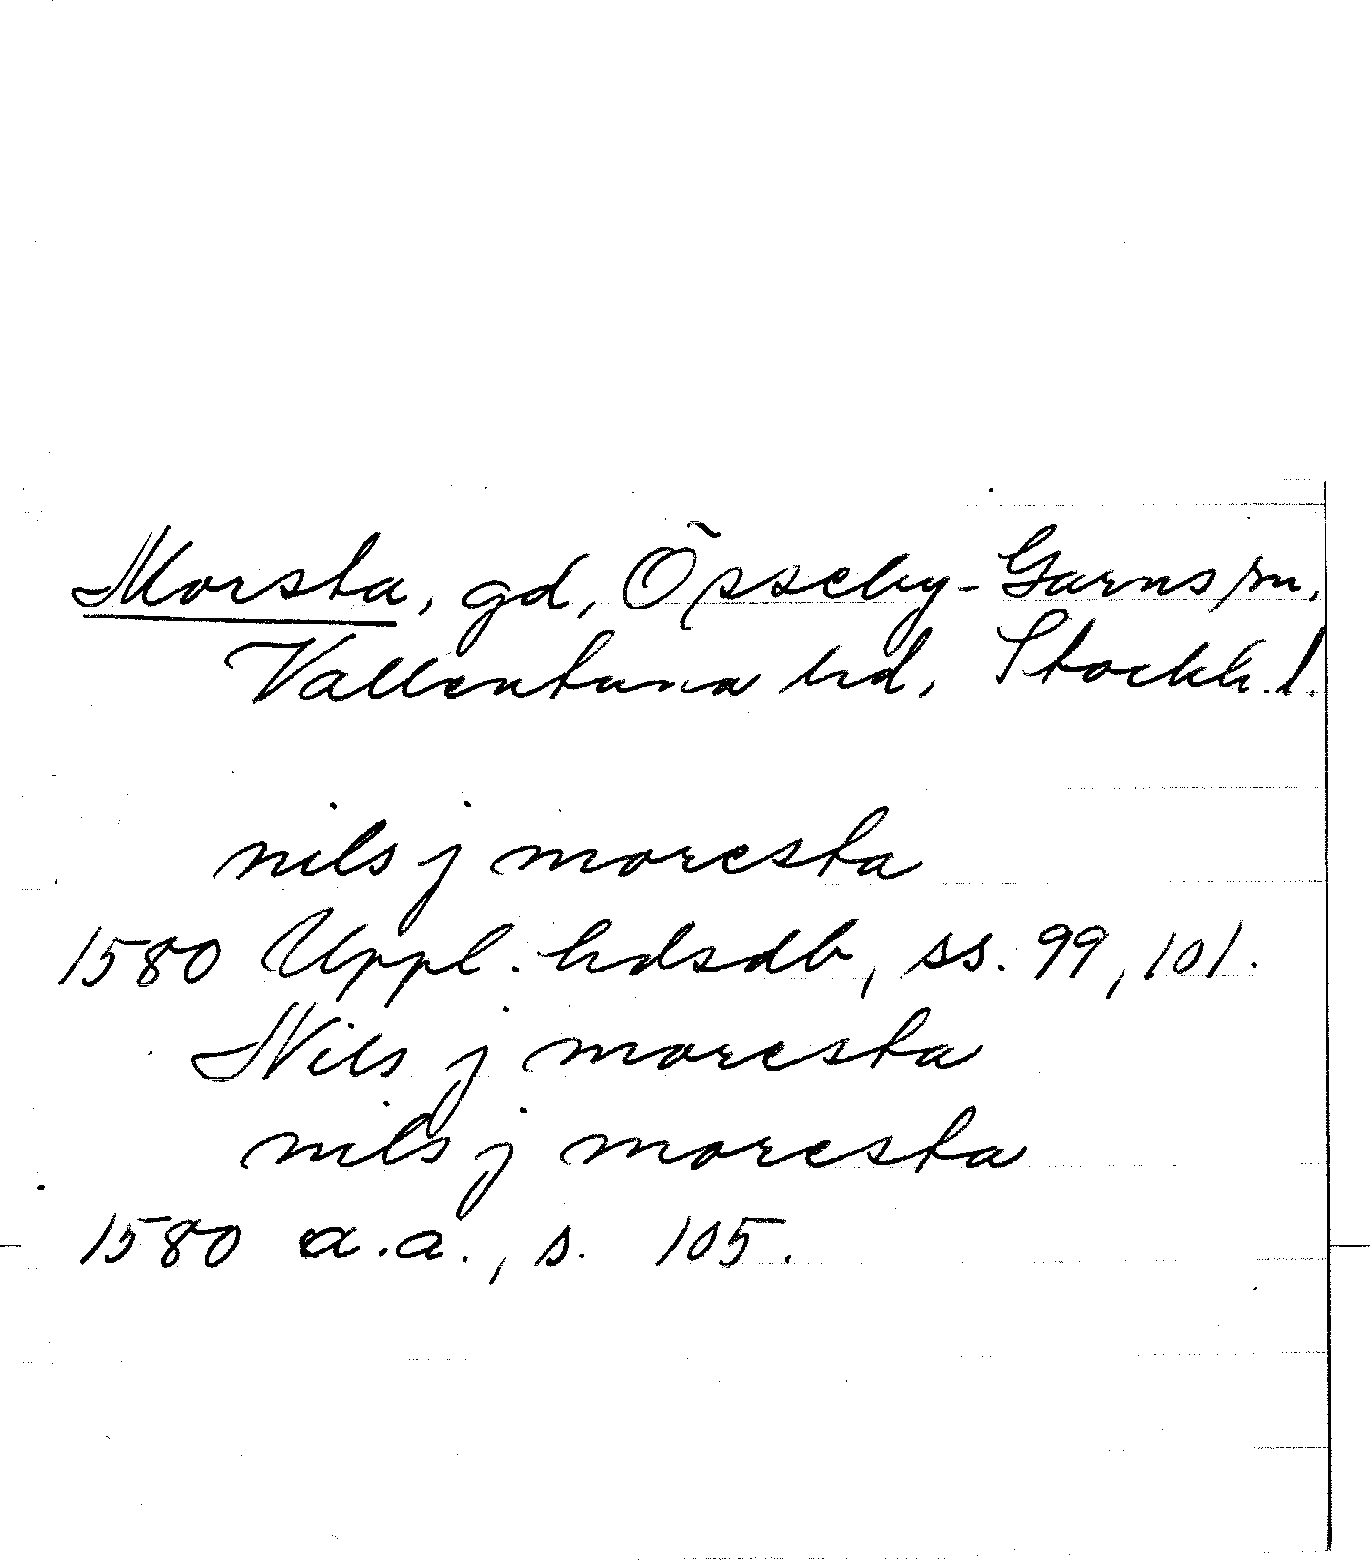 Morsta, gd, Össeby-Garns sn,
Vallentuna hd, Stockh. l.
nils j moresta
1580 Uppl. hdsdb, ss. 99, 101.
Nils j moresta
nils j moresta
1580 a.a., s. 105.